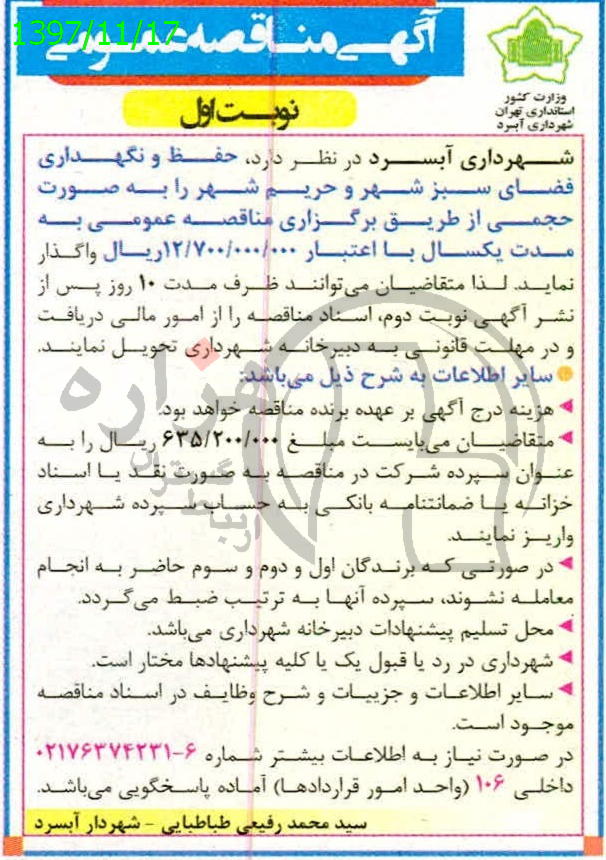 1397/11/17
آگهی مناقصه عمومی
وزارت کشور
استانداری تهران
شهرداری آبسرد
نوبت اول
شهرداری آبسرد در نظر دارد، حفظ و نگهداری
فضای سبز شهر و حریم شهر را به صورت
حجمی از طریق برگزاری مناقصه عمومی به
مدت یکسال با اعتبار ۱۲/۷۰۰/۰۰۰/۰۰۰ریال واگذار
نماید. لذا متقاضیان می‌توانند ظرف مدت ۱۰ روز پس از
نشر آگهی نوبت دوم، اسناد مناقصه را از امور مالی دریافت
و در مهلت قانونی به دبیرخانه شهرداری تحویل نمایند.
سایر اطلاعات به شرح ذیل می‌باشد:
هزینه درج آگهی بر عهده برنده مناقصه خواهد بود.
متقاضیان می‌بایست مبلغ ۶۳۵/۲۰۰/۰۰۰ ریال را به
عنوان سپرده شرکت در مناقصه به صورت نقد یا اسناد
خزانه یا ضمانتنامه بانکی به حساب سپرده شهرداری
واریز نمایند.
در صورتی که برندگان اول و دوم و سوم حاضر به انجام
معامله نشوند، سپرده آنها به ترتیب ضبط می‌گردد.
محل تسلیم پیشنهادات دبیرخانه شهرداری می‌باشد.
شهرداری در رد یا قبول یک یا کلیه پیشنهادها مختار است.
سایر اطلاعات و جزییات و شرح وظایف در اسناد مناقصه
موجود است.
در صورت نیاز به اطلاعات بیشتر شماره ۶-۰۲۱۷۶۳۷۴۲۳۱
داخلی ۱۰۶ (واحد امور قراردادها) آماده پاسخگویی می‌باشد.
سید محمد رفیعی طباطبایی - شهردار آبسرد
هزاره